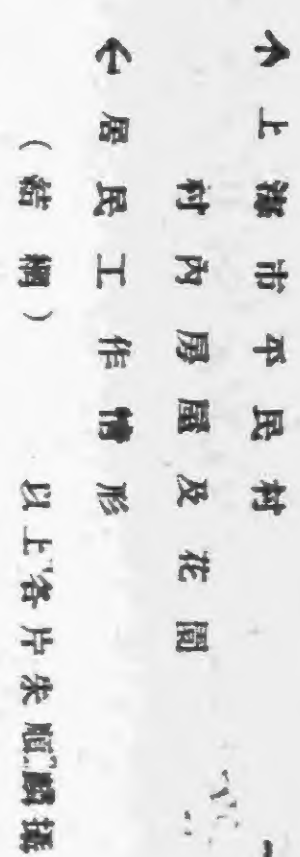 ↑上海市平民村
村內房屋及花園
←居民工作情形
（結網）　以上各片朱順麟攝